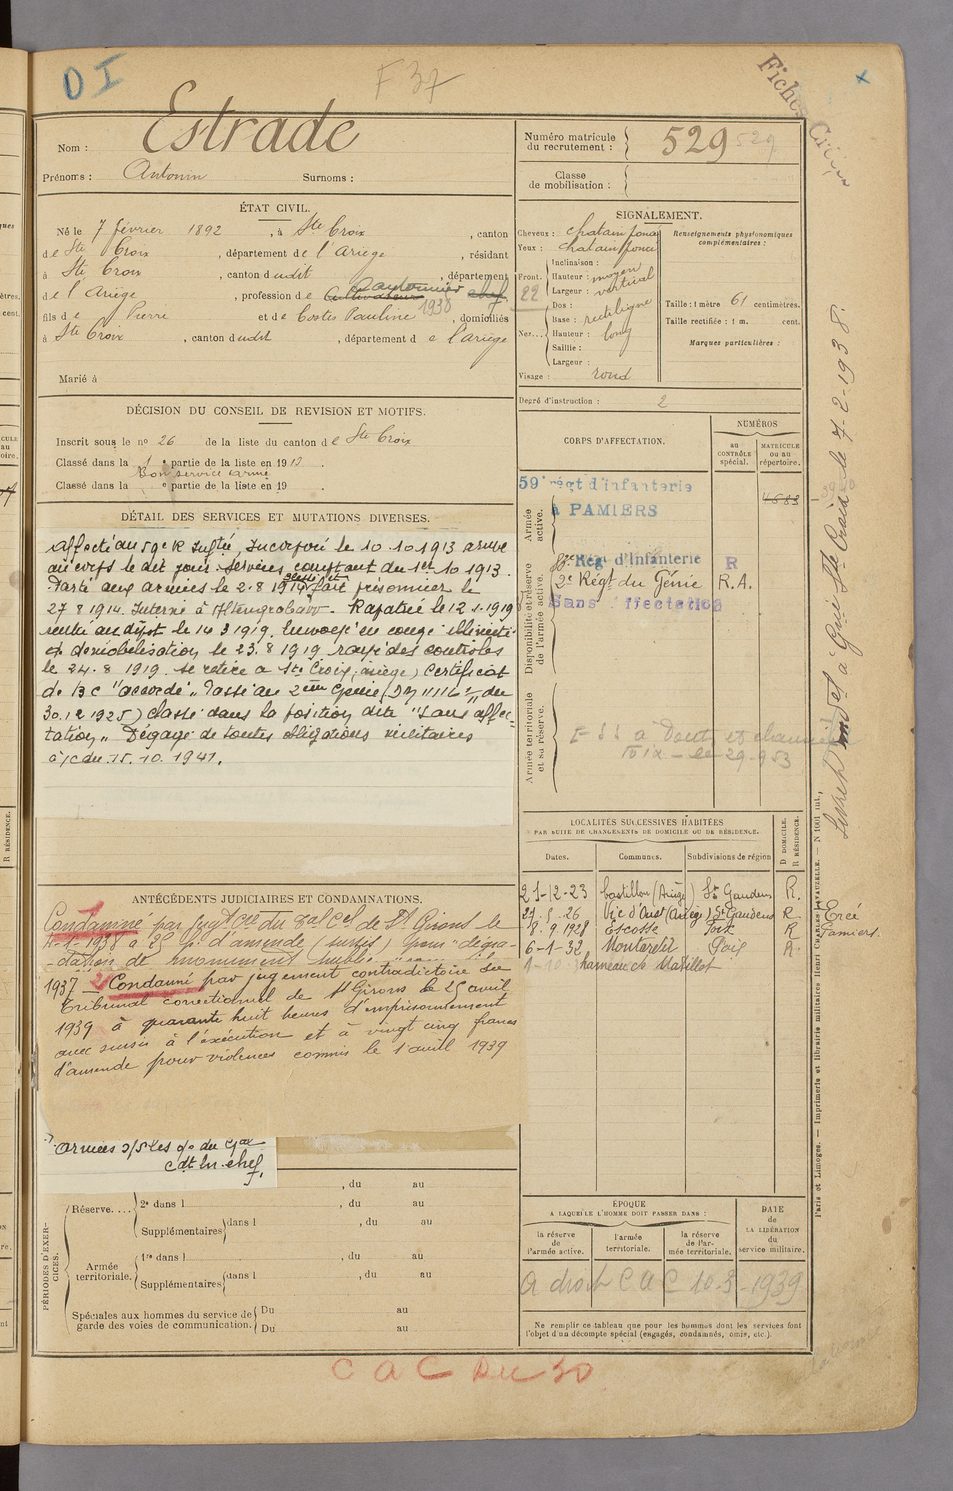 O I
F 37
Fiches
Nom : Estrade
Prénoms : Antonin Surnoms :
Numéro matricule du recrutement : 529 529
Classe de mobilisation :
ÉTAT CIVIL.
Né le 7 février 1892, à Ste Croix, canton
de Ste Croix, département de l'Ariège, résidant
à Ste Croix, canton dudit, département
de l'Ariège, profession de Cultivateur Cantonnier chef 1938
fils de Pierre et de Costes Pauline, domiciliés
à Ste Croix, canton dudit, département de l'ariège
Marié à
SIGNALEMENT.
Cheveux : chatain foncé
Yeux : chatain foncé
Front. 22
Inclinaison :
Hauteur : moyen
Largeur : vertical
Nez...
Dos :
Base : rectiligne
Hauteur : long
Saillie :
Largeur :
Visage : rond
Renseignements physionomiques complémentaires :
Taille : 1 mètre 61 centimètres.
Taille rectifiée : 1 m. cent.
Marques particulières :
Degré d'instruction : 2
DÉCISION DU CONSEIL DE REVISION ET MOTIFS.
Inscrit sous le no 26 de la liste du canton de Ste Croix
Classé dans la 1e partie de la liste en 1913.
Bon service armé
Classé dans la e partie de la liste en 19 .
DÉTAIL DES SERVICES ET MUTATIONS DIVERSES.
Affecté au 59e R Inftie, Incorporé le 10.10.1913 arrivé
au corps le dit jour. Services comptant du 1er 10 1913.
Parti aux armées le 2.8 1914 fait prisonnier le
27 8 1914. Interné à Altengrabow - Rapatrié le 12 1.1919
rentré au dépôt le 14 3 1919. Envoyé en congé illimité
de démobilisation le 23.8 1919 rayé des contrôles
le 24.8 1919 se retire a Ste Croix (ariège) Certificat
de B C "accordé". Passé au 2ème Génie (
30.12 1925) classé dans la position dite "Sans affec-
tation". Dégagé de toutes obligations militaires
à/c du 15.10.1941.
CORPS D'AFFECTATION.
NUMÉROS
au CONTRÔLE spécial.
MATRICULE ou au répertoire.
Armée active.
59e régt d'infanterie
à PAMIERS
4683
Disponibilité et réserve de l'armée active.
Rég d'Infanterie R
2e Régt du Génie R.A.
Sans affectation
Armée territoriale et sa réserve.
Foix - le 29.953
LOCALITÉS SUCCESSIVES HABITÉES
PAR SUITE DE CHANGEMENTS DE DOMICILE OU DE RÉSIDENCE.
Dates. Communes. Subdivisions de région D DOMICILE. R RÉSIDENCE.
21-12-23 Castillon (Ariège) St Gaudens R.
27.5.26 Vic d'Oust (Ariège) St Gaudens R Ercé
8.9.1928 Escosse Foix R Pamiers.
6-1-32 Montardit Foix R
hameau de Matillot
ANTÉCÉDENTS JUDICIAIRES ET CONDAMNATIONS.
1 Condamné par Jugt Cre du Tal Cel de St Girons le
4-1-1938 à 25 f. d'amende (sursis) pour "dégra-
-dation de monument public"
1937 - 2 Condamné par jugement contradictoire du
Tribunal correctionnel de St Girons le 25 avril
1939 à quarante huit heures d'emprisonnement
avec sursis à l'exécution et à vingt cinq francs
d'amende pour violences commis le 1 avril 1939
Armées s/s les o/ du Gal
Cdt en chef.
PÉRIODES D'EXERCICES.
, du au
Réserve.... 2e dans l , du au
Supplémentaires dans l , du au
Armée territoriale. 1re dans l , du au
Supplémentaires dans l , du au
Spéciales aux hommes du service de garde des voies de communication. Du au
Du au
ÉPOQUE
A LAQUELLE L'HOMME DOIT PASSER DANS :
la réserve de l'armée active.
l'armée territoriale.
la réserve de l'armée territoriale.
DATE DE LA LIBÉRATION du service militaire.
A droit C a C 10-3-1939
Ne remplir ce tableau que pour les hommes dont les services font l'objet d'un décompte spécial (engagés, condamnés, omis, etc.).
C a C du 30
Paris et Limoges. — Imprimerie et librairie militaires Henri CHARLES-LAVAUZELLE. — N 1001 int.